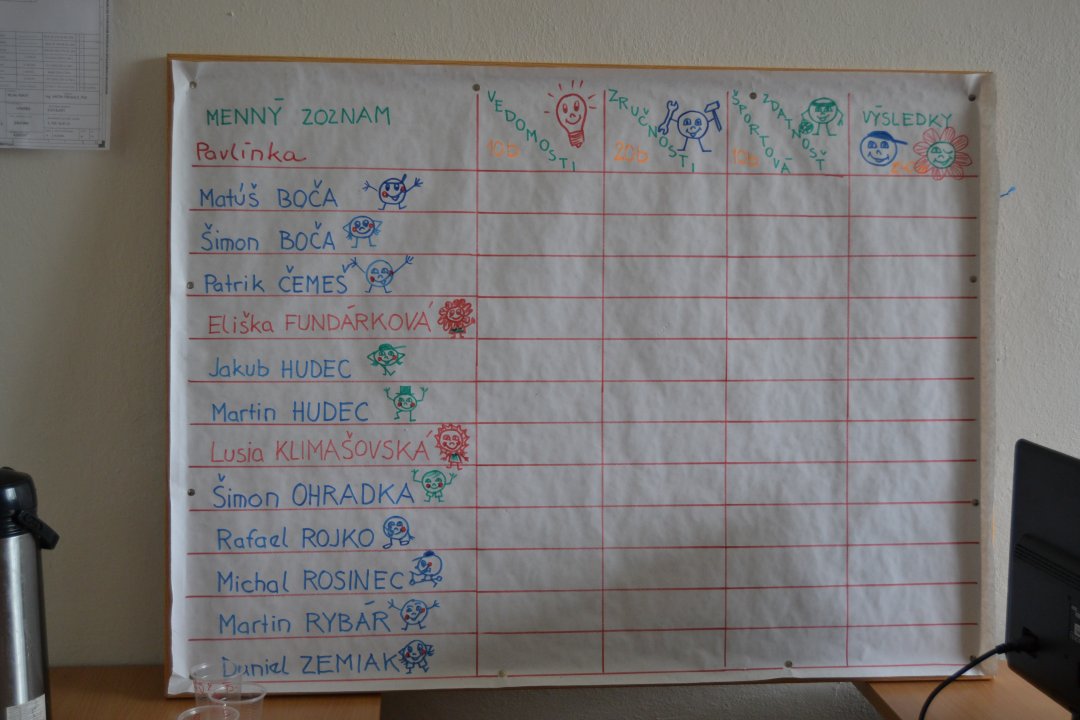 MENNÝ ZOZNAM
VEDOMOSTI
10b
ZRUČNOSTI
20b
ŠPORTOVÁ
ZDATNOSŤ
10b
VÝSLEDKY
Pavlínka
Matúš BOČA
Šimon BOČA
Patrik ČEMEŠ
Eliška FUNDÁRKOVÁ
Jakub HUDEC
Martin HUDEC
Lusia KLIMAŠOVSKÁ
Šimon OHRADKA
Rafael ROJKO
Michal ROSINEC
Martin RYBÁR
Daniel ZEMIAK